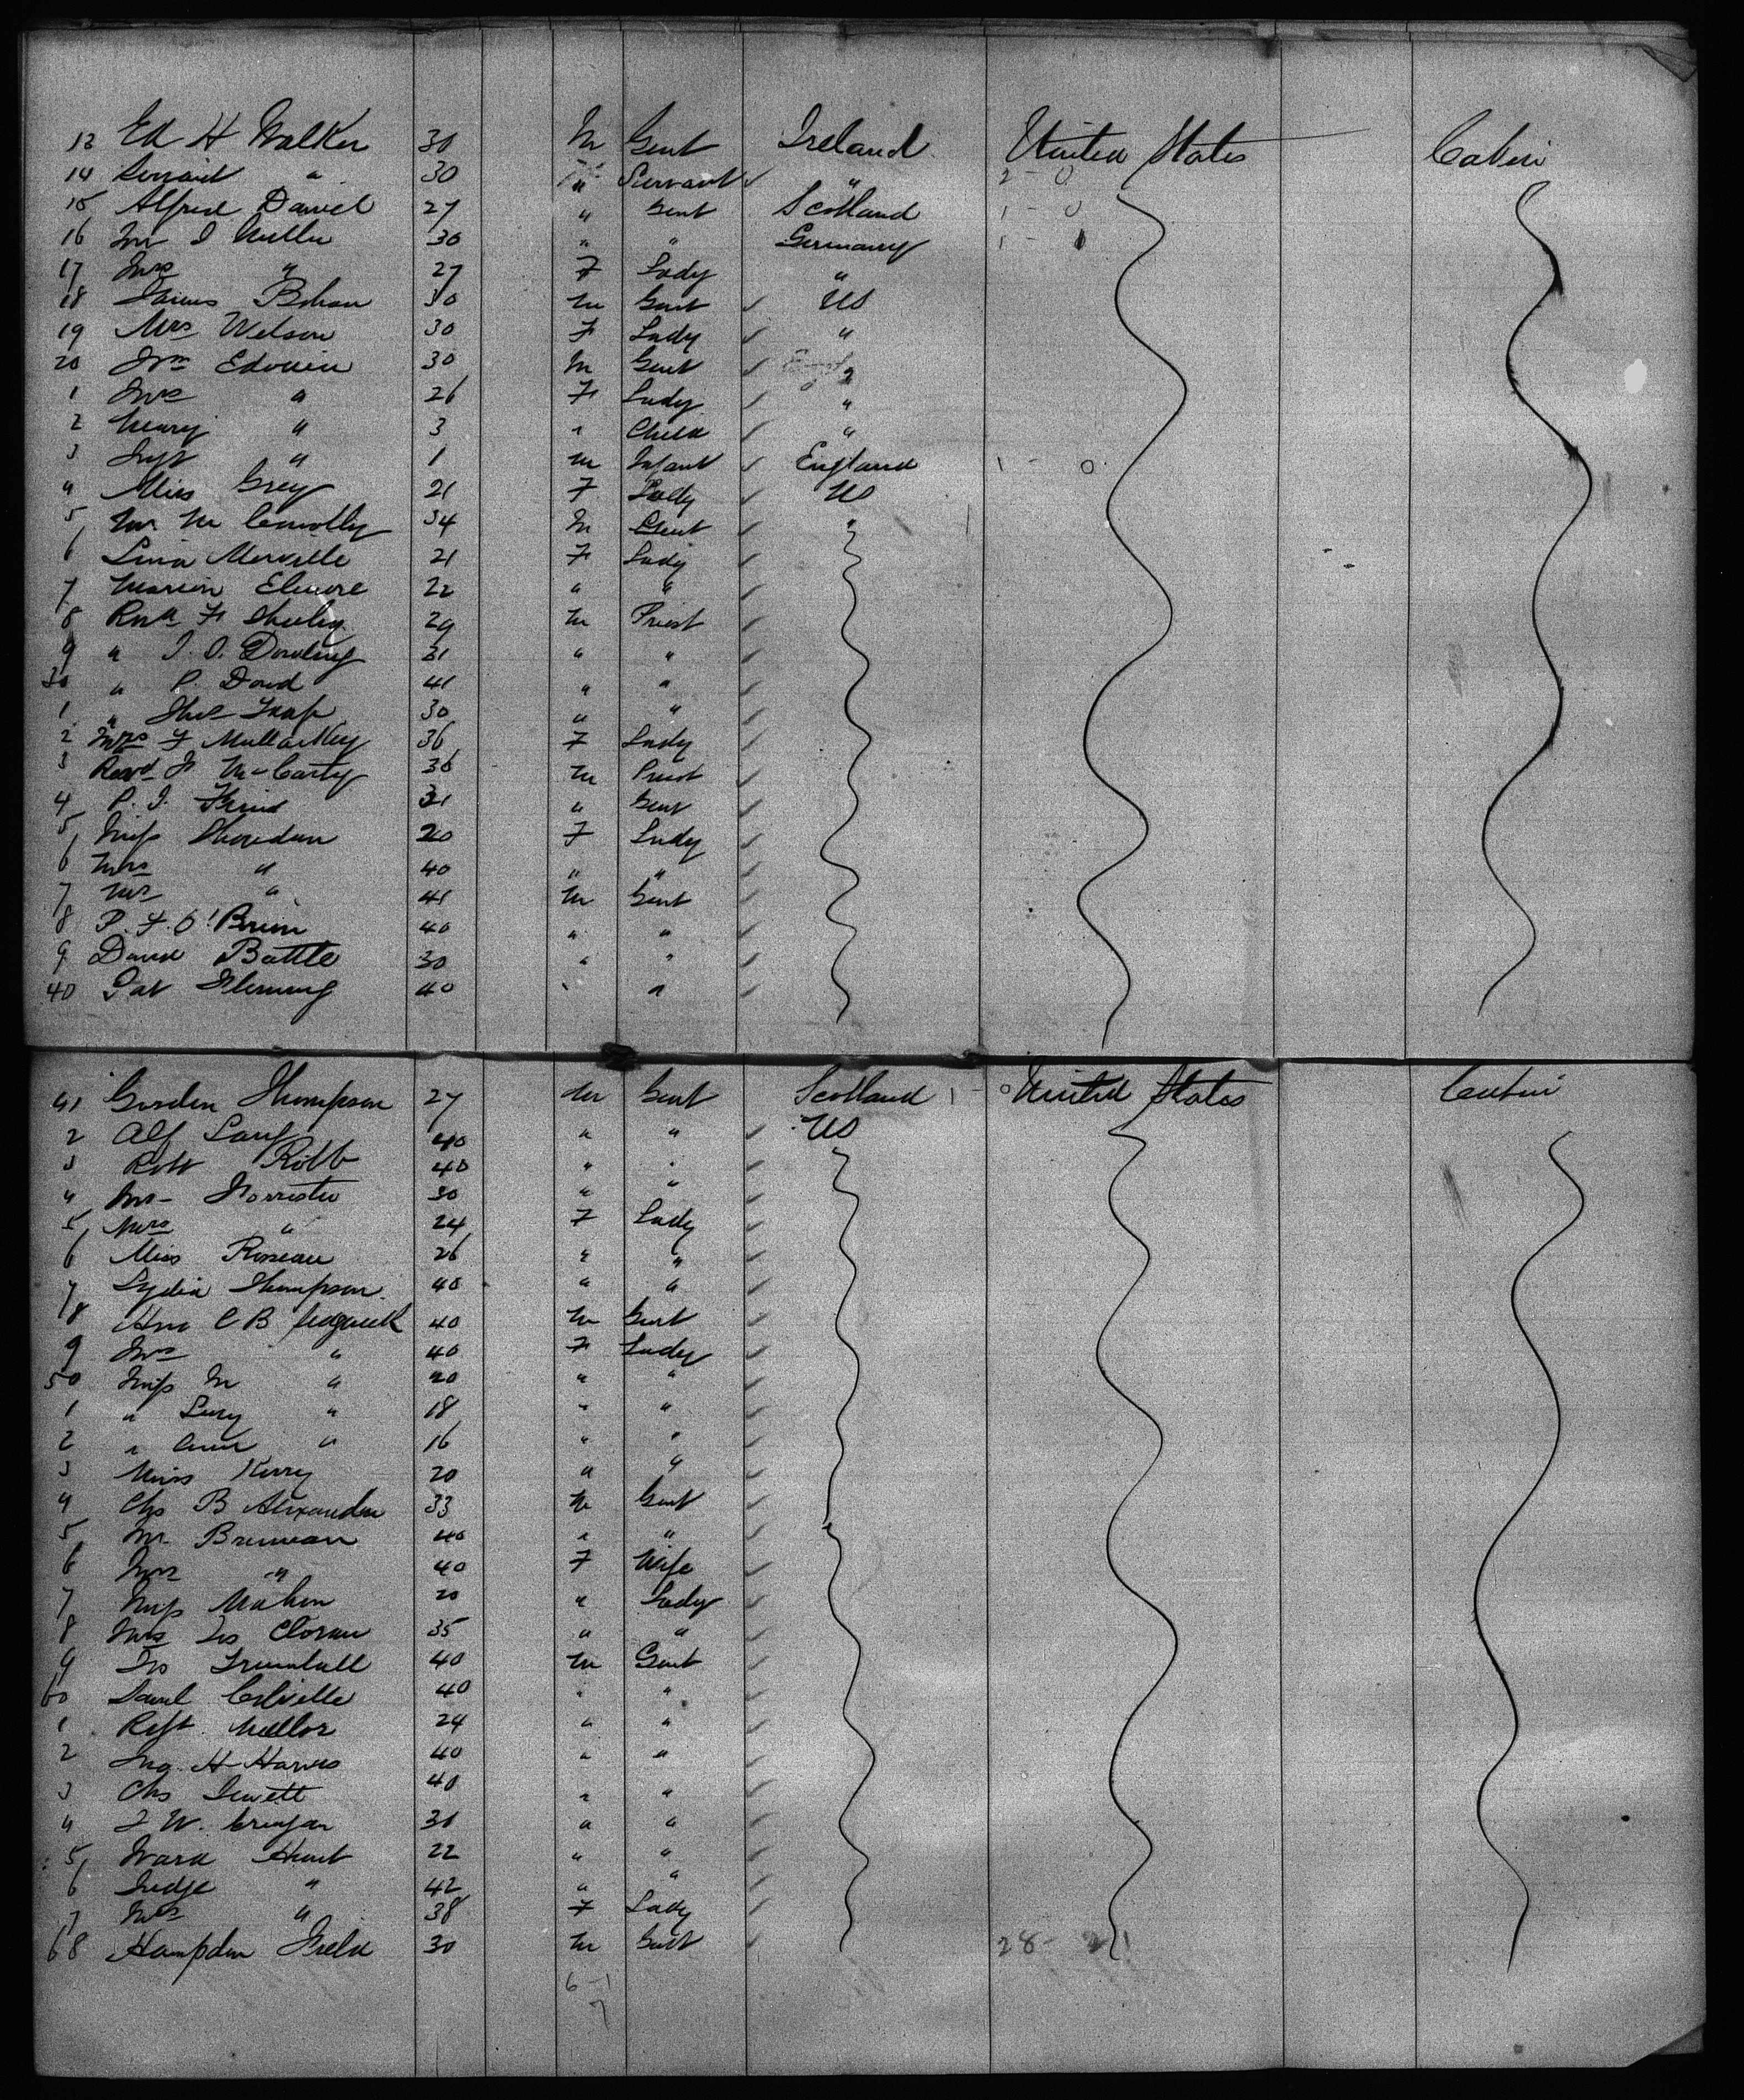 13 Ed H Walker 30 M Gent Ireland United States Cabin
14 Servant " 30 " Servant " 2 - 0
15 Alfred Daniel 27 " Gent Scotland 1 - 0
16 Mr J 30 " " Germany 1 -
17 Mrs " 27 F Lady "
18 James 30 M Gent US
19 Mrs Wilson 30 F Lady "
20 Edwin 30 M Gent
1 Mrs " 26 F Lady "
2 " 3 " Child "
3 Inft " 1 M Infant England 1 - 0
4 Miss Grey 21 F Lady US
5 Mr M Connolly 34 M Gent "
6 Lina Merville 21 F Lady
7 Marion Elmore 22 " "
8 Revd F 29 M Priest
9 " J. O. Dowling 31 " "
30 " P. Dowd 41 " "
1 " 30 " "
2 Mrs F Mullarkey 36 F Lady
3 Revd F McCarty 36 M Priest
4 P. J. 31 " Gent
5 Miss Sheridan 20 F Lady
6 Mrs " 40 " "
7 Mr " 41 M Gent
8 P. F. O'Brien 40 " "
9 David Battle 30 " "
40 Pat Fleming 40 " "
41 Gorden Thompson 27 M Gent Scotland 1 - 0 United States Cabin
2 Alf 40 " " US
3 Robt Robb 40 " "
4 Mr Forrester 30 " "
5 Mrs " 24 F Lady
6 Miss Roseau 26 " "
7 Lydia Thompson 40 " "
8 Hon C B 40 M Gent
9 Mrs " 40 F Lady
50 Miss M " 20 " "
1 " Lucy " 18 " "
2 " " 16 " "
3 Miss Kerry 20 " "
4 Chs B Alexander 33 M Gent
5 Mr Brennan 40 " "
6 Mrs " 40 F Wife
7 Miss Mahon 20 " Lady
8 Mrs Jos Cloran 35 " "
9 Jos 40 M Gent
60 40 " "
1 Mellor 24 " "
2 H 40 " "
3 Chs Jewett 40 " "
4 J W. 31 " "
5 Ward Hunt 22 " "
6 Judge " 42 " "
7 Mrs " 38 F Lady
68 Hampden Field 30 M Gent 28 -
6 - 1
7